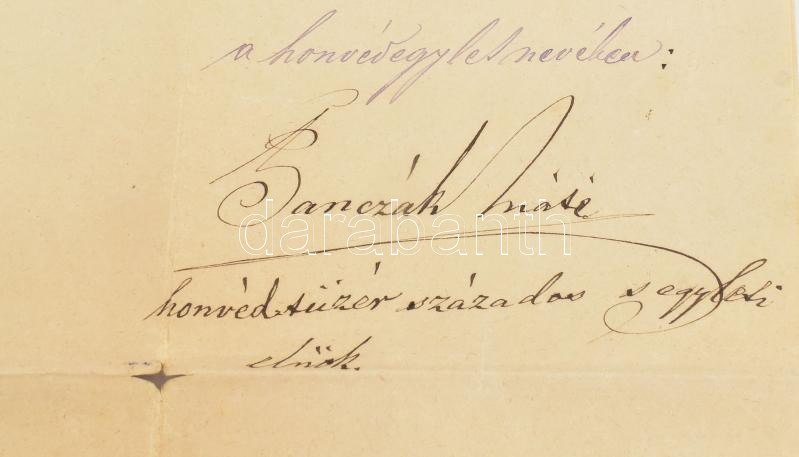 a honvédegylet nevében:
Banczák Máté
darabanth
honvéd tüzér százados s egyleti
elnök.